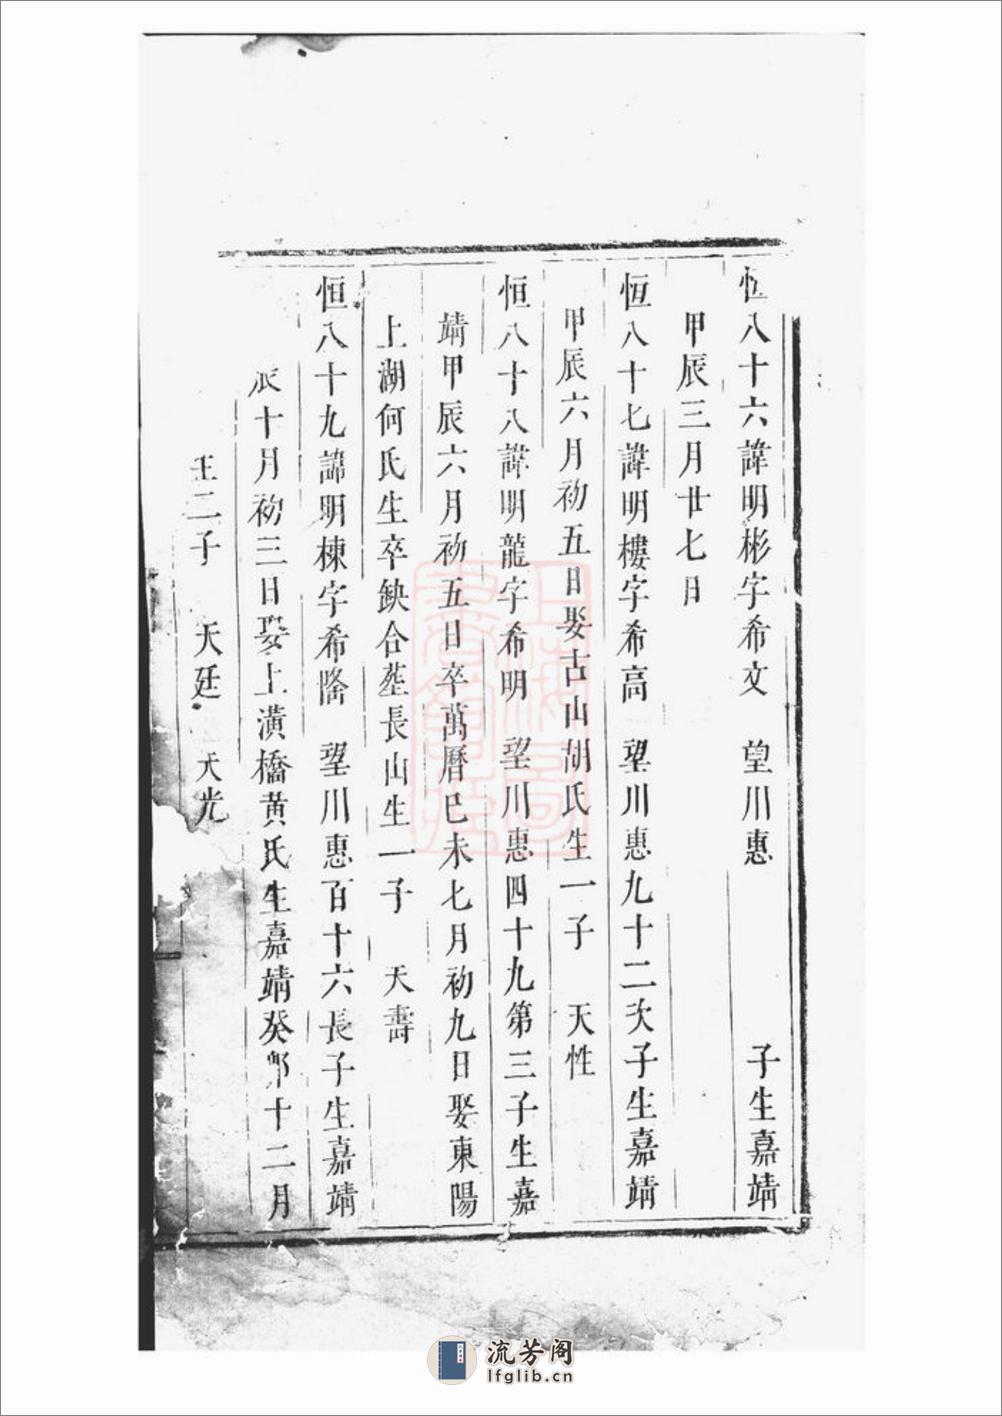 恒八十六諱明彬字希文 望川惠 子生嘉靖
甲辰三月廿七日
恒八十七諱明樓字希高 望川惠九十二次子生嘉靖
甲辰六月初五日娶古山胡氏生一子 天性
恒八十八諱明龍字希明 望川惠四十九第三子生嘉
靖甲辰六月初五日卒萬曆巳未七月初九日娶東陽
上湖何氏生卒缺合塟長山生一子 天壽
恒八十九諱明棟字希隆 望川惠百十六長子生嘉靖
辰十月初三日娶上潢橋黄氏生嘉靖癸卯十二月
二子 天廷 天光
上海圖書館藏
流芳阁
lfglib.cn